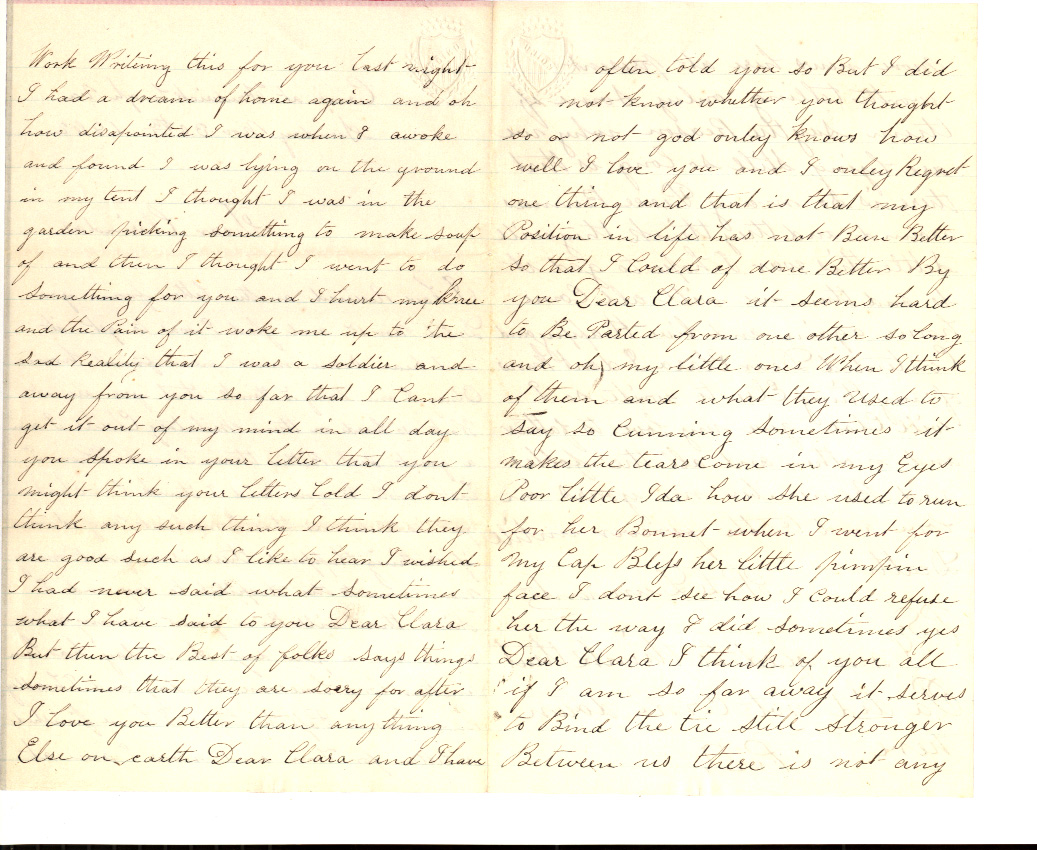 Work Writing this for you last night
I had a dream of home again and oh
how disapointed I was when I awoke
and found I was lying on the ground
in my tent I thought I was in the
garden picking something to make soup
of and then I thought I went to do
something for you and I hurt my Knee
and the Pain of it woke me up to the
sad Reality that I was a soldier and
away from you so far that I Cant
get it out of my mind in all day
you spoke in your letter that you
might think your letters Cold I dont
think any such thing I think they
are good such as I like to hear I wished
I had never said what sometimes
what I have said to you Dear Clara
But then the Best of folks says things
sometimes that they are sorry for after
I love you Better than anything
Else on earth Dear Clara and I have
often told you so But I did
not know whether you thought
so or not god onley knows how
well I love you and I onley Regret
one thing and that is that my
Position in life has not Been Better
so that I Could of done Better By
you Dear Clara it seems hard
to Be Parted from one other so long
and oh my little ones When I think
of them and what they Used to
say so Cunning Sometimes it
makes the tears Come in my Eyes
Poor little Ida how she used to run
for her Bonnet when I went for
my Cap Bless her little pimpin
face I dont see how I Could refuse
her the way I did sometimes yes
Dear Clara I think of you all
if I am so far away it serves
to Bind the tie still stronger
Between us there is not any